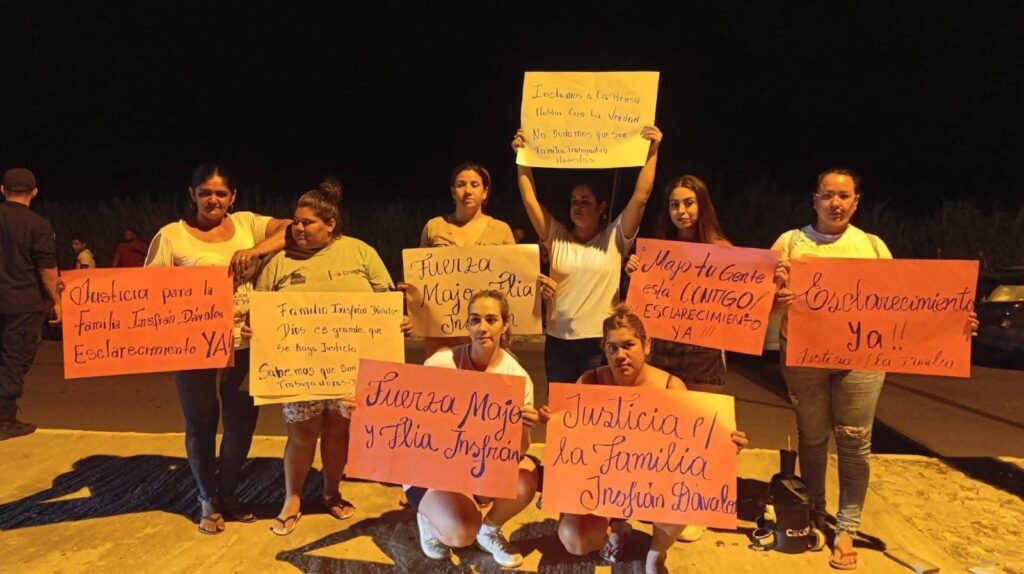 Instamos a La Prensa
Hablar Con La Verdad
No Dudamos que Son
Familia Trabajadora
Honestas
Justicia para la
Familia Insfrán Dávalos
Esclarecimiento YA
Familia Insfrán Dávalos
Dios es grande, que
se haga Justicia
Sabemos que Son
Trabajadoras
Fuerza
Majo y Flia
Insfrán
Majo tu Gente
está CONTIGO!
ESCLARECIMIENTO
YA !!!
Esclarecimiento
Ya !!
Justicia p/ la Familia
Fuerza Majo
y Flia Insfrán
Justicia p/
la Familia
Insfrán Dávalos